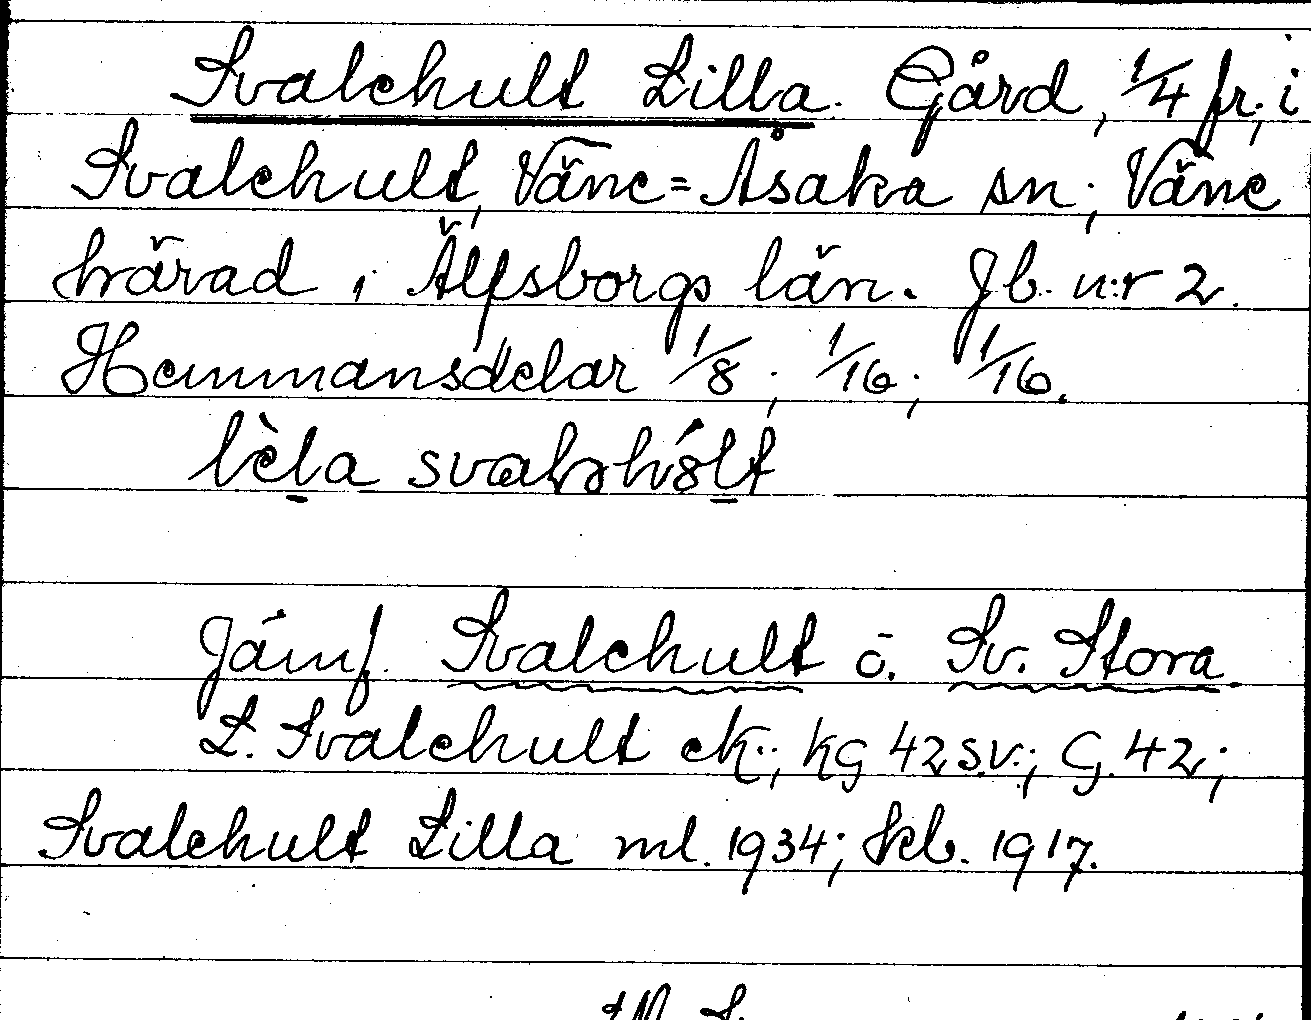 Svalehult Lilla. Gård, 1/4 fr., i
Svalehult, Väne=Åsaka sn; Väne
härad i Älfsborgs län. Jb. n:r 2.
Hemmansdelar 1/8; 1/16; 1/16.
lèla
Jämf. Svalehult o. Sv. Stora.
L. Svalehult ek.; kg 42 s.v.; G. 42;
Svalehult Lilla ml. 1934; tel. 1917.